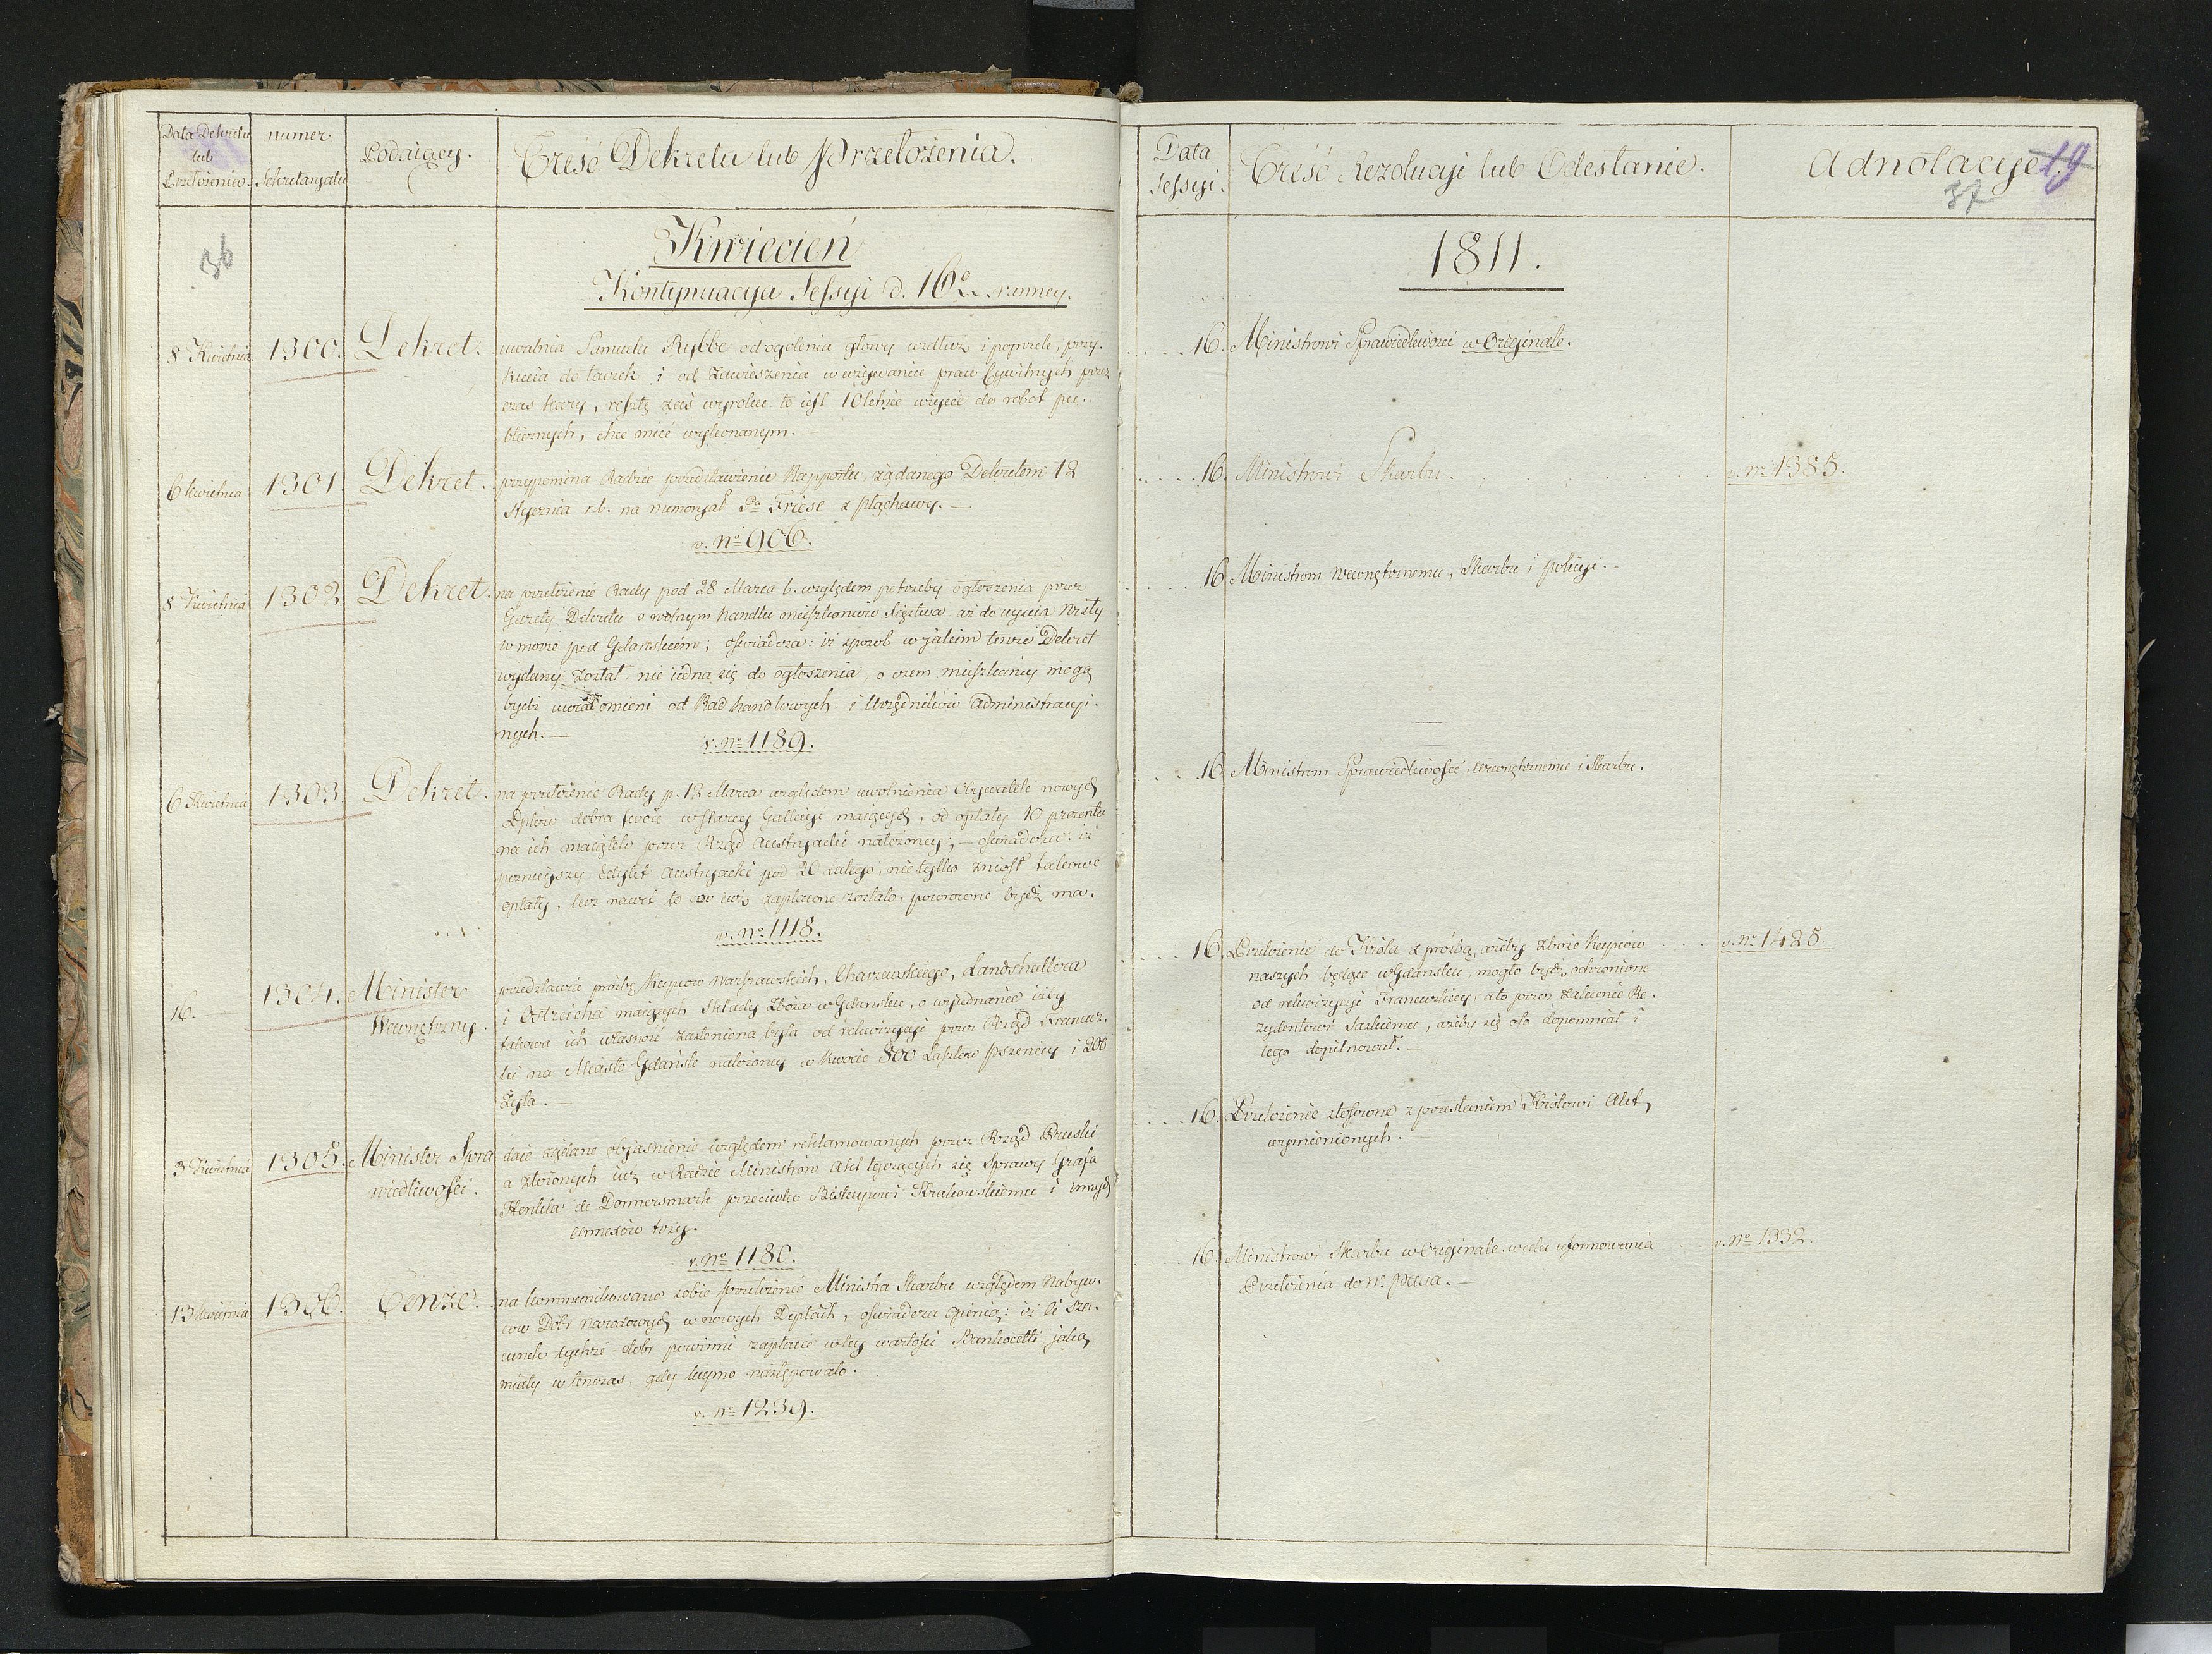 Data Dekretu
lub
Przełożenia.
numer
Sekretaryatu
Podaiący.
Treść Dekretu lub Przełożenia.
36
Kwiecień
Kontynuacya Sessyi d. 16º rannej.
8 Kwietnia 1300. Dekret. uwalnia Samuela Rybbe od ogolenia głowy
kucia do taczek i od zawieszenia w używaniu praw Cywilnych przez
czas kary, resztę zaś wyroku to iest 10letnie użycie do robot pu-
blicznych, chce mieć wykonanym.
6 kwietnia 1301. Dekret. przypomina Radzie przedstawienie Rapportu żądanego Dekretem 12
Stycznia r.b. na memoryał Pa Friese z Płąchawy.
v. Nº 906.
8 Kwietnia 1302. Dekret. na przełożenie Rady pod 28 Marca b. względem potrzeby ogłoszenia przez
Gazety Dekretu o wolnym handlu mieszkańców Księstwa aż do uyścia Wisły
w morze pod Gdańskiem; oświadcza: iż sposob w jakim tenże Dekret
wydany został, nie iedna się do ogłoszenia, o czem mieszkańcy mogą
bydź uwiadomieni od Rad handlowych i Urzędników administracyi-
nych.
v. Nº 1189.
6 Kwietnia 1303. Dekret. na przełożenie Rady p. 12 Marca względem uwolnienia Obywateli nowych
Dptów dobra swoie w starey Gallicyi maiących, od opłaty 10 procentu
na ich maiątki przez Rząd Austryacki nałożoney; – oświadcza: iż
poznieyszy Edykt Austryacki pod 20 Lutego, nie tylko zniosł takowe
opłaty, lecz nawet to co iuż zapłacone zostało, powrocone bydź ma.
v. Nº 1118.
16. 1304. Minister
Wewnętrzny.
przedstawia prośbę Kupców Warszawskich, Chavzewskiego, Landshuttera
i Ostreicha maiących Składy Zboża w Gdańsku, o wyiednanie iżby
takowa ich własność zasłoniona była od rekwizycyi przez Rząd Francuz-
ki na Miasto Gdańsk nałożoney w kwocie 800 Łasztów pszenicy i 200
Żyta.
3 Kwietnia 1305. Minister Spra
wiedliwości.
daie żądane obiaśnienie względem reklamowanych przez Rząd Pruski
a złożonych iuż w Radzie Ministrów Akt tyczących się Sprawy Grafa
Henkla de Donnersmark przeciwko Biskupowi Krakowskiemu i innych
annexów trzy.
v. Nº 1180.
13 Kwietnia 1306. Tenże. na kommunikowane sobie przełożenie Ministra Skarbu względem Nabyw-
ców Dóbr Narodowych w nowych Dptach, oświadcza opinią: iż ci sza-
cunek tychże dobr powinni zapłacić w tey wartości Bankocetli jaką
miały wtenczas, gdy kupno następowało.
v. Nº 1239.
Data
Sessyi.
Treść Rezolucyi lub Odesłanie.
Adnotacye
19
37
1811.
16. Ministrowi Sprawiedliwości w Originale.
16. Ministrowi Skarbu. v. Nº 1385.
16. Ministrom Wewnętrznemu, Skarbu i policyi.
16. Ministrom Sprawiedliwości, Wewnętrznemu i Skarbu.
16. Przełożenie do Króla z prośbą, ażeby zboże Kupców v. Nº 1425.
naszych będące w Gdańsku, mogło bydź ochronione
od rekwizycyi Francuzkiey, a to przez zalecenie Re-
zydentowi Saskiemu, ażeby się o to dopomniał i
tego dopilnował.
16. Przełożenie stosowne z przesłaniem Królowi Akt
wymienionych.
16. Ministrowi Skarbu w Originale w celu uformowania v. Nº 1332.
Przełożenia do N. Pana.